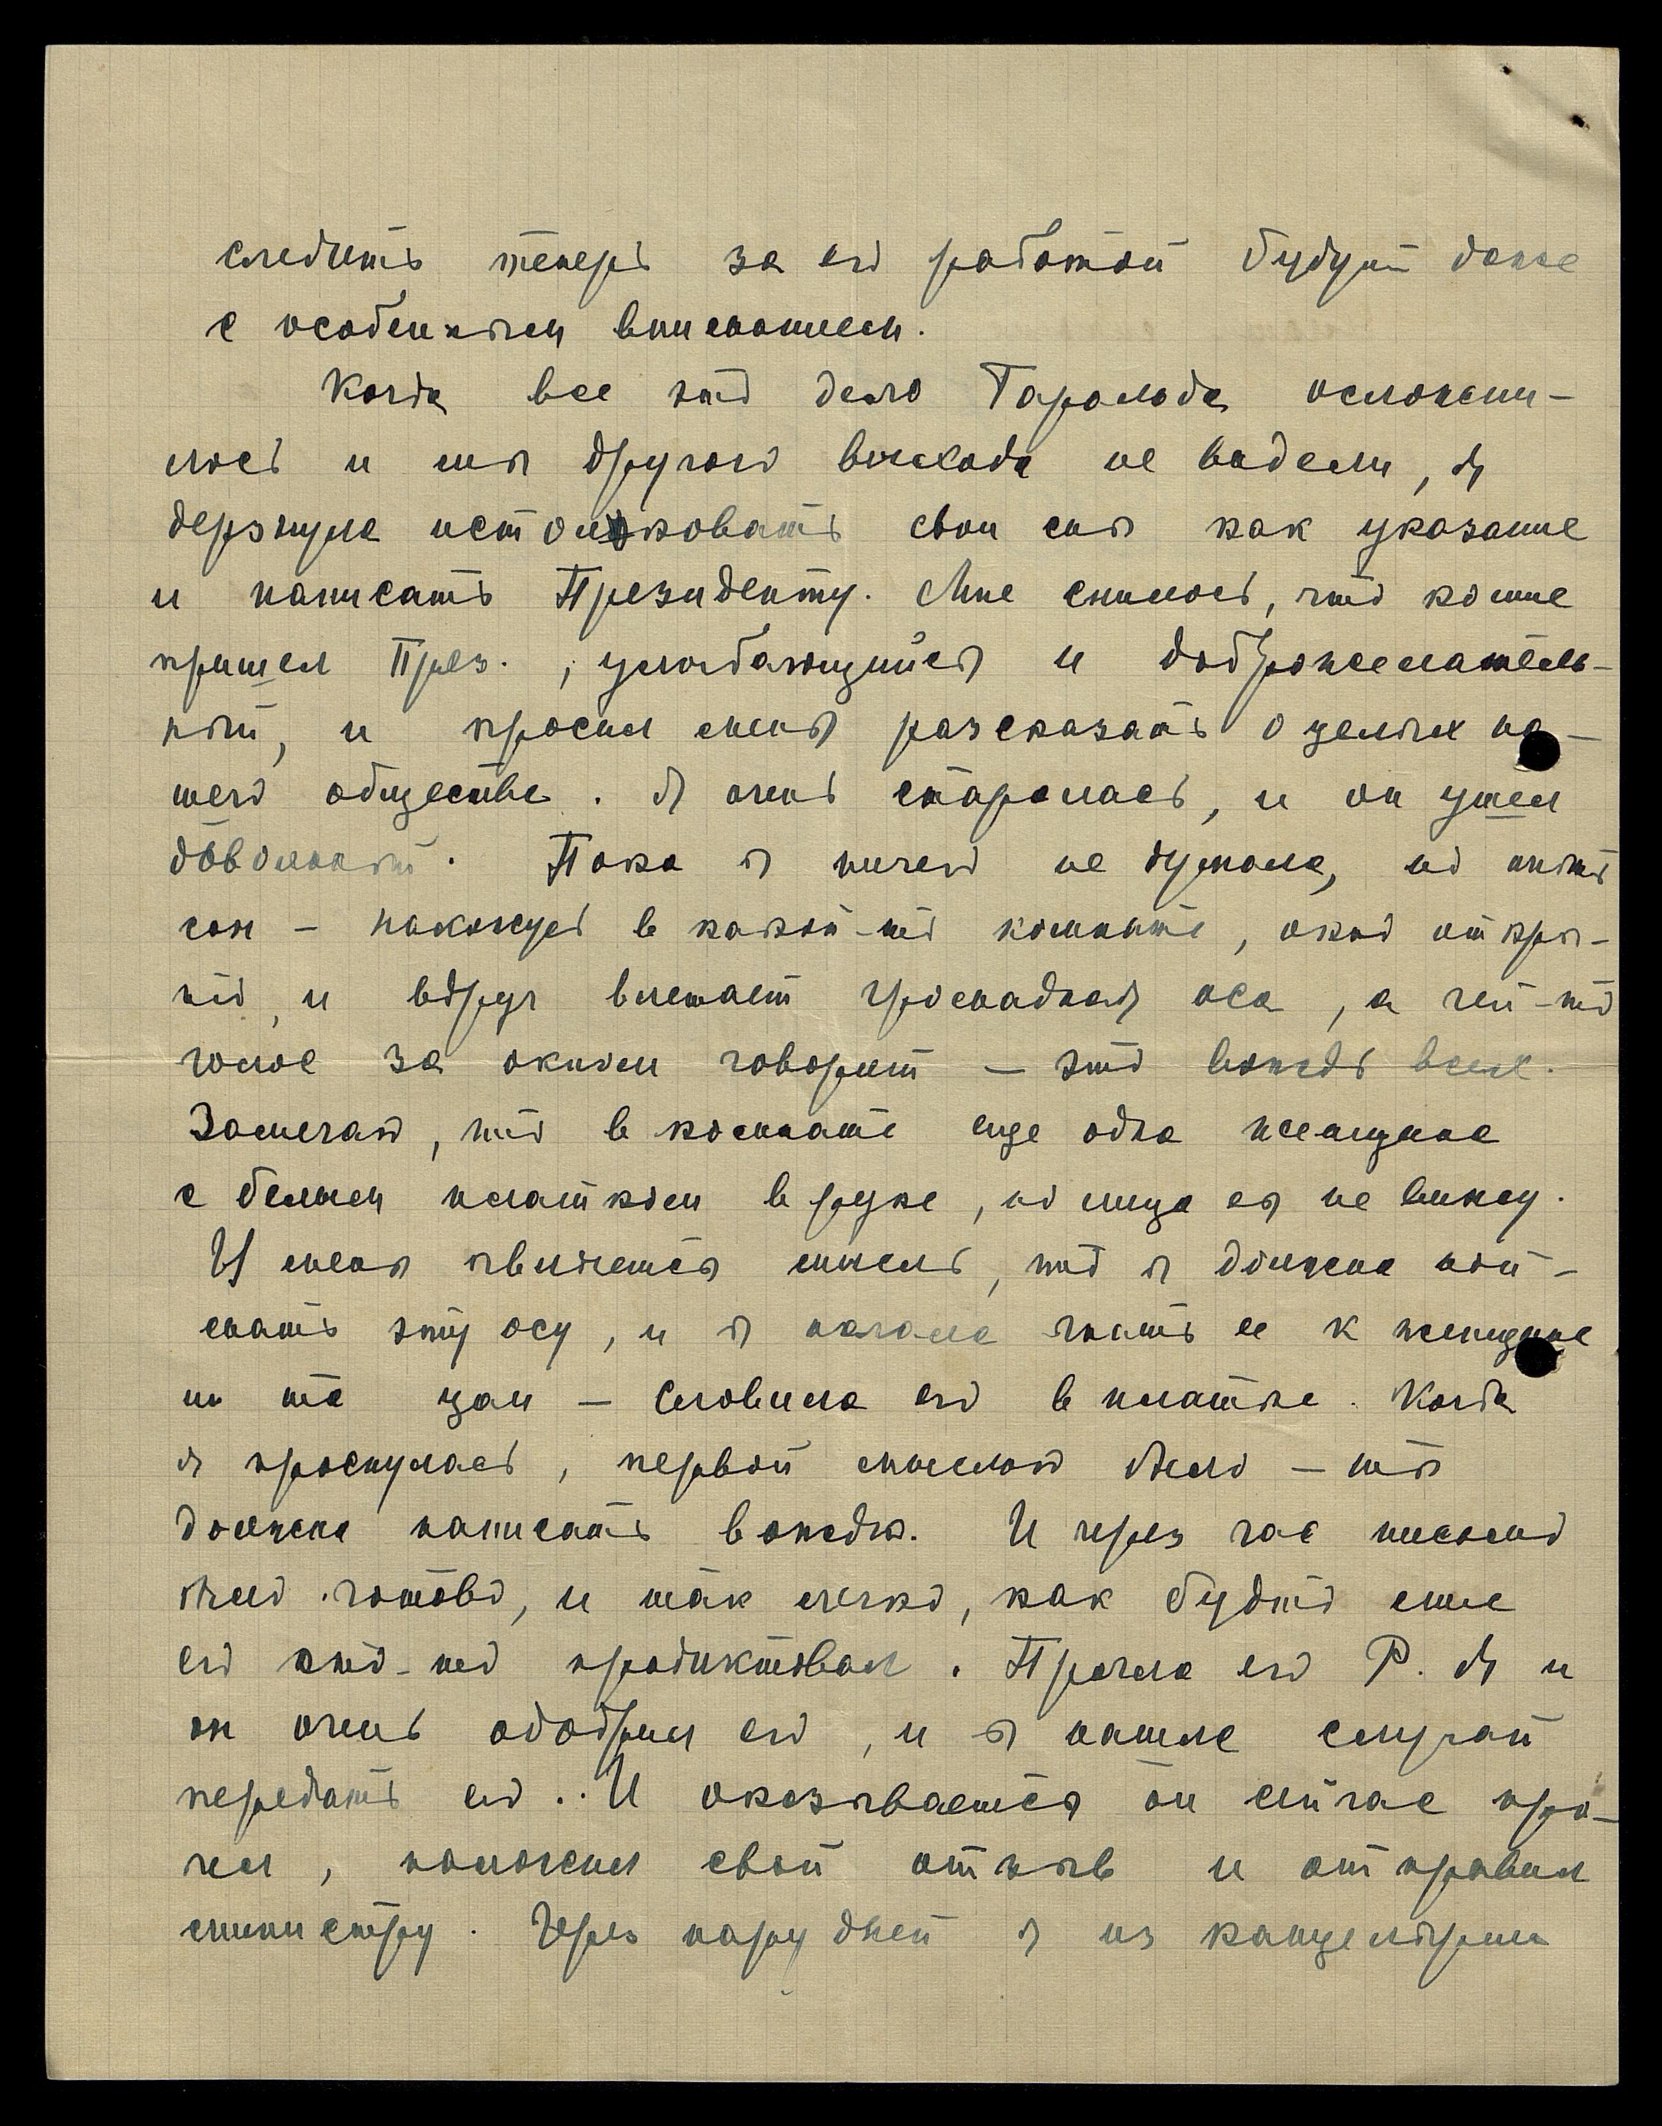 следить теперь за его работой будут даже
с особенным вниманием.
Когда все это дело Гаральда осложни-
лось и мы другого выхода не видели, я
дерзнула истолковать свои сны как указание
и написать Президенту. Мне снилось, что ко мне
пришел През., улыбающийся и доброжелатель-
ный, и просил меня рассказать о целях на-
шего общества. Я очень старалась, и он ушел
довольный. Пока я ничего не думала, но опять
сон – нахожусь в какой-то комнате, окно откры-
то, и вдруг влетает громадная оса, а чей-то
голос за окном говорит – это вождь всех.
Замечаю, что в комнате еще одна женщина
с белым платком в руке, но лица ея не вижу.
И меня является мысль, что я должна пой-
мать эту осу, и я начала гнать ее к женщине
и та цап – словила его в платке. Когда
я проснулась, первой мыслью было – ты
должна написать вождю. И через час письмо
было готово, и так легко, как будто мне
его кто-то продиктовал. Прочла его Р. Я и
он очень одобрил его, и я нашла случай
передать его.. И оказывается он сейчас про-
чел, положил свой отзыв и отправил
министру. Через пару дней я из канцелярии